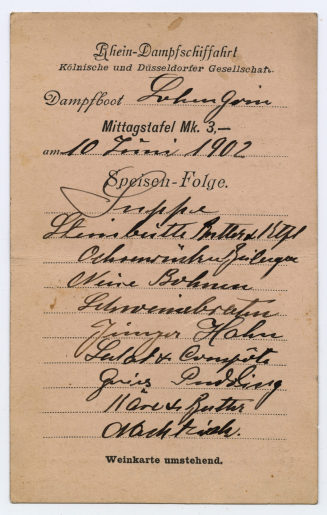 Rhein-Dampfschiffahrt
Kölnische und Düsseldorfer Gesellschaft.
Dampfboot Lohengrin
Mittagstafel Mk. 3,—
am 10 Juni 1902
Speisen-Folge.
Suppe
Steinbutt Butter &
Ochsenrücken
Neue Bohnen
Schweinebraten
Junger Hahn
Salat & Compots
Gries Pudding
Käse & Butter
Nachtisch.
Weinkarte umstehend.